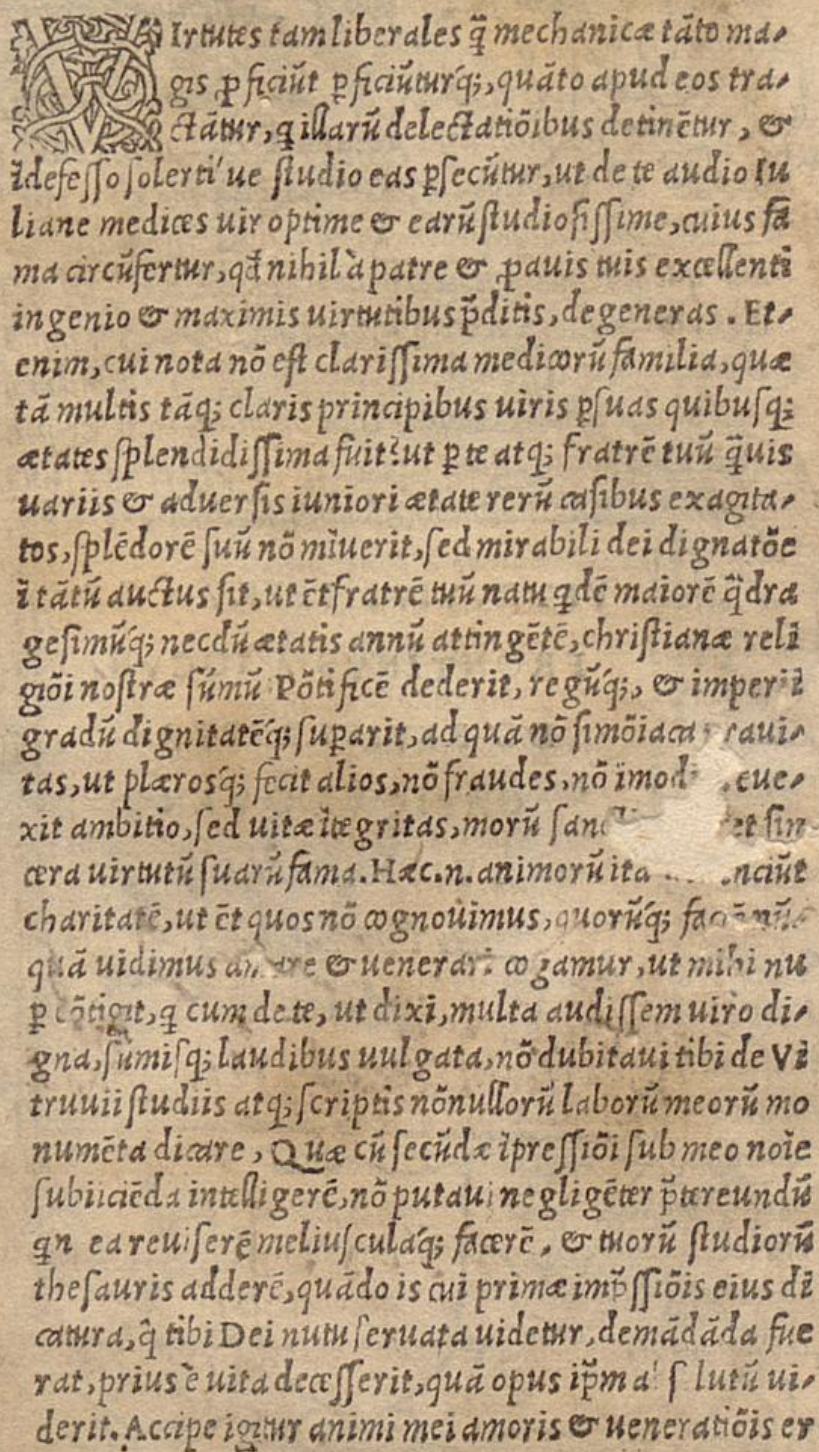 VIrtutes tam liberales q̃ mechanicæ tãto ma⸗
gis ꝓficiũt ꝑficiũturq́;, quãto apud eos tra⸗
ctãtur, q illarũ delectatiõibus detinẽtur, &
ĩdefesso solerti'ue studio eas ꝑsecũtur, ut de te audio Iu
liane medices uir optime & earũ studiosissime, cuius fã
ma circũfertur, qd̃ nihil à patre & ꝓauis tuis excellenti
ingenio & maximis uirtutibus p̃ditis, degeneras. Et⸗
enim, cui nota nõ est clarissima medicorũ familia, quæ
tã multis tãq; claris principibus uiris ꝑ suas quibusq;
ætates splendidissima fuit? ut ꝑ te atq; fratrẽ tuũ q̃uis
uariis & aduersis iuniori ætate rerũ casibus exagita⸗
tos, splẽdorẽ suũ nõ mĩuerit, sed mirabili dei dignatõe
ĩ tãtũ auctus sit, ut ẽt fratrẽ tuũ natu qdẽ maiorẽ q̃dra
gesimũq́; necdũ ætatis annũ attingẽtẽ, christianæ reli
giõi nostræ sũmũ Põtificẽ dederit, regũq́;, & imperii
gradũ dignitatẽq́; suꝑarit, ad quã nõ simõiaca rauı⸗
tas, ut plærosq́; fecit alios, nõ fraudes, nõ ĩmod eue⸗
xit ambitio, sed uitæ ĩtegritas, morũ et sin
cera uirtutũ suarũ fama. Hæc.n. animorũ ita nciũt
charitatẽ, ut ẽt quos nõ cognouimus, quorũq́; faciẽ nũ⸗
quã uidimus amare & uenerari cogamur, ut mihi nu
ꝑ cõtigit, q cum de te, ut dixi, multa audissem uiro di⸗
gna, sũmisq; laudibus uulgata, nõ dubitaui tibi de Vi
truuii studiis atq; scriptis nõnullorũ laborũ meorũ mo
numẽta dicare, Quæ cũ secũdæ ĩpressiõi sub meo noĩe
subiiciẽda intelligerẽ, nõ putaui negligẽter p̃tereundũ
qn ea reuiserẽ meliusculaq́; facerẽ, & tuorũ studiorũ
thesauris adderẽ, quãdo is cui primæ imp̃ssiõis eius di
catura, q̃ tibi Dei nutu seruata uidetur, demãdãda fue
rat, prius è uita decesserit, quã opus ip̃m a s lutũ ui⸗
derit. Accipe igitur animi mei amoris & ueneratiõis er